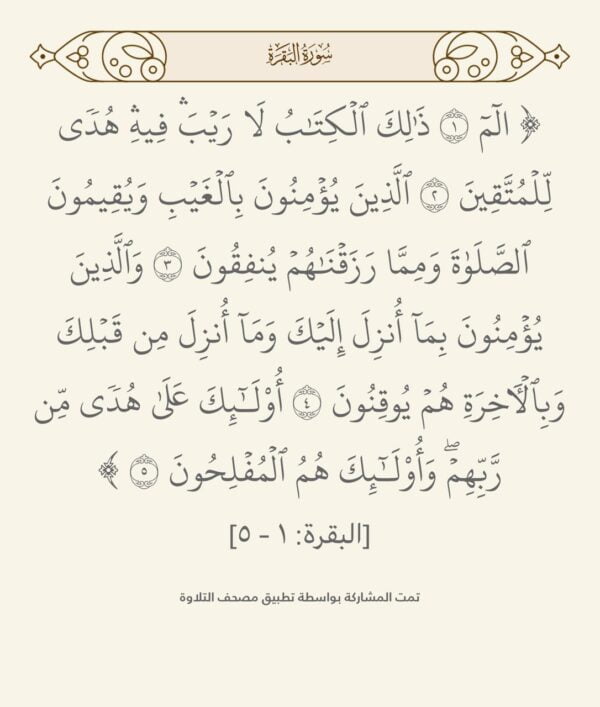 سُورَةُ البَقَرَةِ
﴿ الٓمٓ ١ ذَٰلِكَ ٱلۡكِتَٰبُ لَا رَيۡبَۛ فِيهِۛ هُدٗى
لِّلۡمُتَّقِينَ ٢ ٱلَّذِينَ يُؤۡمِنُونَ بِٱلۡغَيۡبِ وَيُقِيمُونَ
ٱلصَّلَوٰةَ وَمِمَّا رَزَقۡنَٰهُمۡ يُنفِقُونَ ٣ وَٱلَّذِينَ
يُؤۡمِنُونَ بِمَآ أُنزِلَ إِلَيۡكَ وَمَآ أُنزِلَ مِن قَبۡلِكَ
وَبِٱلۡأٓخِرَةِ هُمۡ يُوقِنُونَ ٤ أُوْلَٰٓئِكَ عَلَىٰ هُدٗى مِّن
رَّبِّهِمۡۖ وَأُوْلَٰٓئِكَ هُمُ ٱلۡمُفۡلِحُونَ ٥ ﴾
[البقرة: ١ - ٥]
تمت المشاركة بواسطة تطبيق مصحف التلاوة